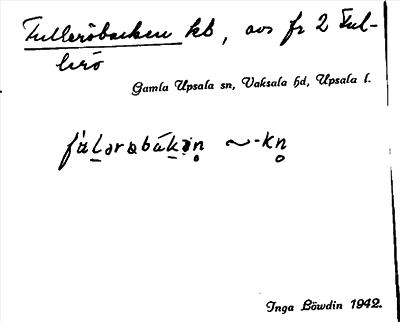 Fulleröbacken kb, avs fr 2 Ful-
lerö
Gamla Upsala sn, Vaksala hd, Upsala l.
~ -kn̥
Inga Löwdin 1942.